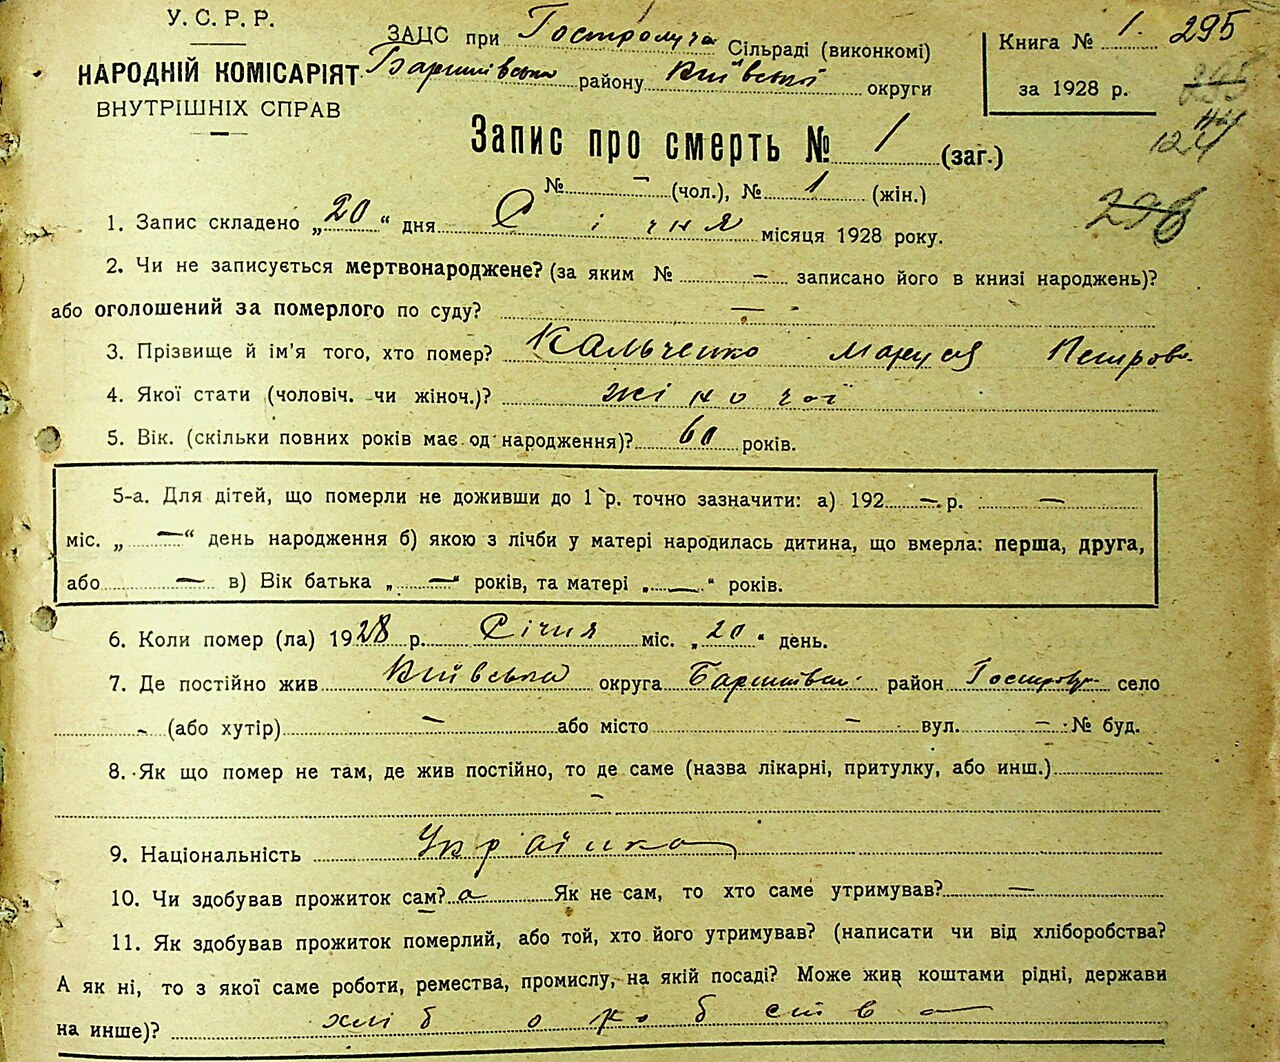 У. С. Р. Р.
НАРОДНІЙ КОМІСАРІЯТ
ВНУТРІШНІХ СПРАВ
ЗАЦС при Гостролуча Сільраді (виконкомі)
Баришівська району Київської округи
Книга № 1. 295
за 1928 р.
Запис про смерть № 1 (заг.)
124
№ – (чол.), № 1 (жін.)
296
1. Запис складено „20“ дня Січня місяця 1928 року.
2. Чи не записується мертвонароджене? (за яким № – записано його в книзі народжень)?
або оголошений за померлого по суду? –
3. Прізвище й ім'я того, хто помер? Кальченко Маруся Петрова
4. Якої стати (чоловіч. чи жіноч.)? жіночої
5. Вік. (скільки повних років має од народження)? 60 років.
5-а. Для дітей, що померли не доживши до 1 р. точно зазначити: а) 192 – р. –
міс. „ – “ день народження б) якою з лічби у матері народилась дитина, що вмерла: перша, друга,
або – в) Вік батька „ – “ років, та матері „ – “ років.
6. Коли помер (ла) 1928 р. Січня міс. „20“ день.
7. Де постійно жив Київська округа Баришівськ район Гостролуч село
– (або хутір) – або місто – вул. – № буд.
8. Як що помер не там, де жив постійно, то де саме (назва лікарні, притулку, або инш.)
–
9. Національність Українка
10. Чи здобував прожиток сам? а Як не сам, то хто саме утримував? –
11. Як здобував прожиток померлий, або той, хто його утримував? (написати чи від хліборобства?
А як ні, то з якої саме роботи, ремества, промислу, на якій посаді? Може жив коштами рідні, держави
на инше)? хліборобства